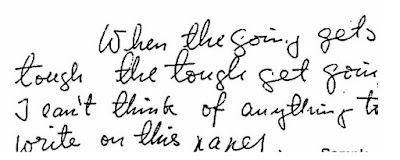 When the going gets
tough the tough get goin
I can't think of anything to
write on this